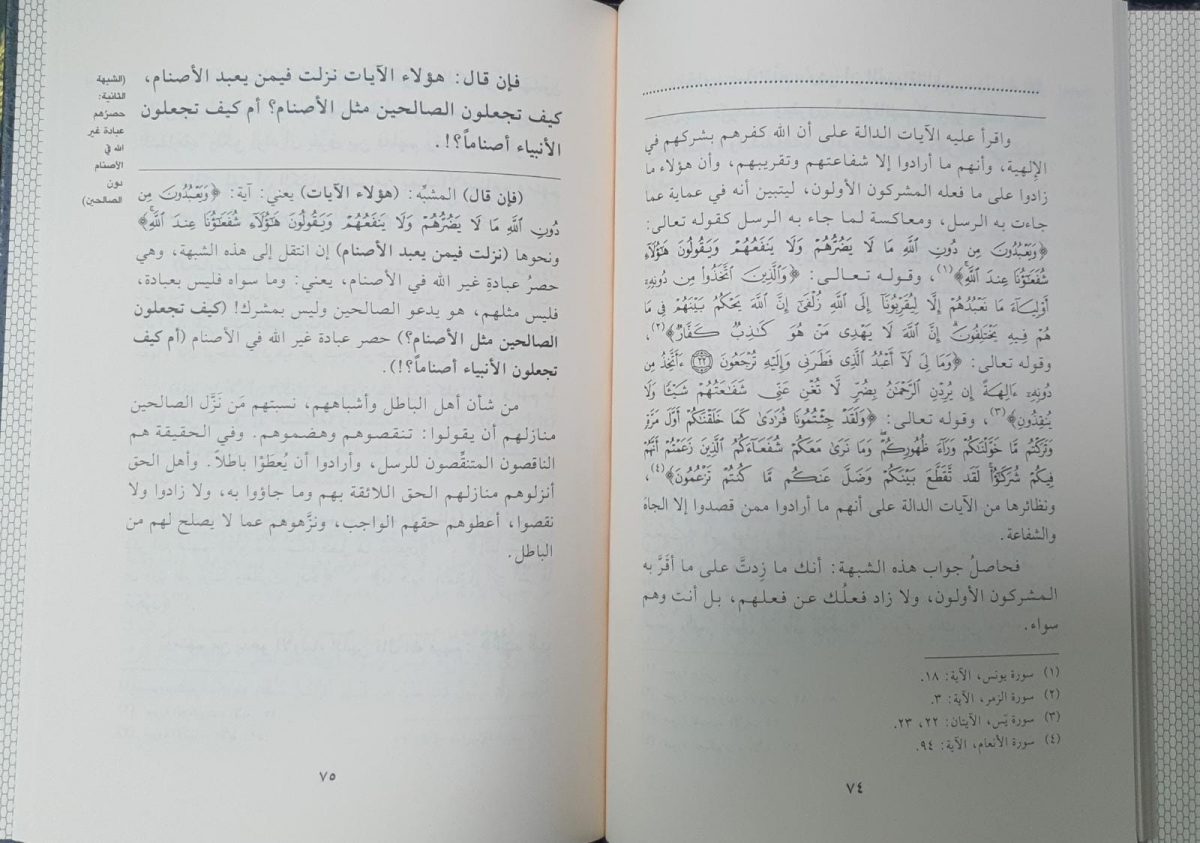 واقرأ عليه الآيات الدالة على أن الله كفرهم بشركهم في
الإلهية، وأنهم ما أرادوا إلا شفاعتهم وتقريبهم، وأن هؤلاء ما
زادوا على ما فعله المشركون الأولون، ليتبين أنه في عماية عما
جاءت به الرسل، ومعاكسة لما جاء به الرسل كقوله تعالى:
﴿وَيَعْبُدُونَ مِن دُونِ اللَّهِ مَا لَا يَضُرُّهُمْ وَلَا يَنفَعُهُمْ وَيَقُولُونَ هَٰؤُلَاءِ
شُفَعَاؤُنَا عِندَ اللَّهِ﴾(١)، وقوله تعالى: ﴿وَالَّذِينَ اتَّخَذُوا مِن دُونِهِ
أَوْلِيَاءَ مَا نَعْبُدُهُمْ إِلَّا لِيُقَرِّبُونَا إِلَى اللَّهِ زُلْفَىٰ إِنَّ اللَّهَ يَحْكُمُ بَيْنَهُمْ فِي مَا
هُمْ فِيهِ يَخْتَلِفُونَ إِنَّ اللَّهَ لَا يَهْدِي مَنْ هُوَ كَاذِبٌ كَفَّارٌ﴾(٢)،
وقوله تعالى: ﴿وَمَا لِيَ لَا أَعْبُدُ الَّذِي فَطَرَنِي وَإِلَيْهِ تُرْجَعُونَ ٢٢ ءَأَتَّخِذُ مِن
دُونِهِ ءَالِهَةً إِن يُرِدْنِ الرَّحْمَٰنُ بِضُرٍّ لَّا تُغْنِ عَنِّي شَفَاعَتُهُمْ شَيْئًا وَلَا
يُنقِذُونِ﴾(٣)، وقوله تعالى: ﴿وَلَقَدْ جِئْتُمُونَا فُرَادَىٰ كَمَا خَلَقْنَاكُمْ أَوَّلَ مَرَّةٍ
وَتَرَكْتُم مَّا خَوَّلْنَاكُمْ وَرَاءَ ظُهُورِكُمْ وَمَا نَرَىٰ مَعَكُمْ شُفَعَاءَكُمُ الَّذِينَ زَعَمْتُمْ أَنَّهُمْ
فِيكُمْ شُرَكَاءُ لَقَد تَّقَطَّعَ بَيْنَكُمْ وَضَلَّ عَنكُم مَّا كُنتُمْ تَزْعُمُونَ﴾(٤)،
ونظائرها من الآيات الدالة على أنهم ما أرادوا ممن قصدوا إلا الجاه
والشفاعة.
فحاصلُ جواب هذه الشبهة: أنك ما زِدتَّ على ما أقَرَّ به
المشركون الأولون، ولا زاد فعلُك عن فعلهم، بل أنت وهم
سواء.
(١) سورة يونس، الآية: ١٨.
(٢) سورة الزمر، الآية: ٣.
(٣) سورة يٓس، الآيتان: ٢٢، ٢٣.
(٤) سورة الأنعام، الآية: ٩٤.
٧٤
فإن قال: هؤلاء الآيات نزلت فيمن يعبد الأصنام،
كيف تجعلون الصالحين مثل الأصنام؟ أم كيف تجعلون
الأنبياء أصناماً؟!.
(الشبهة
الثانية:
حصرُهم
عبادة غير
الله في
الأصنام
دون
الصالحين)
(فإن قال) المشبِّه: (هؤلاء الآيات) يعني: آية: ﴿وَيَعْبُدُونَ مِن
دُونِ اللَّهِ مَا لَا يَضُرُّهُمْ وَلَا يَنفَعُهُمْ وَيَقُولُونَ هَٰؤُلَاءِ شُفَعَاؤُنَا عِندَ اللَّهِ﴾
ونحوها (نزلت فيمن يعبد الأصنام) إن انتقل إلى هذه الشبهة، وهي
حصرُ عبادةِ غير الله في الأصنام، يعني: وما سواه فليس بعبادة،
فليس مثلهم، هو يدعو الصالحين وليس بمشرك! (كيف تجعلون
الصالحين مثل الأصنام؟) حصر عبادة غير الله في الأصنام (أم كيف
تجعلون الأنبياء أصناماً؟!).
من شأن أهل الباطل وأشباههم، نسبتهم مَن نَزَّل الصالحين
منازلهم أن يقولوا: تنقصوهم وهضموهم. وفي الحقيقة هم
الناقصون المتنقِّصون للرسل، وأرادوا أن يُعطَوْا باطلاً. وأهل الحق
أنزلوهم منازلهم الحق اللائقة بهم وما جاؤوا به، ولا زادوا ولا
نقصوا، أعطوهم حقهم الواجب، ونزَّهوهم عما لا يصلح لهم من
الباطل.
٧٥